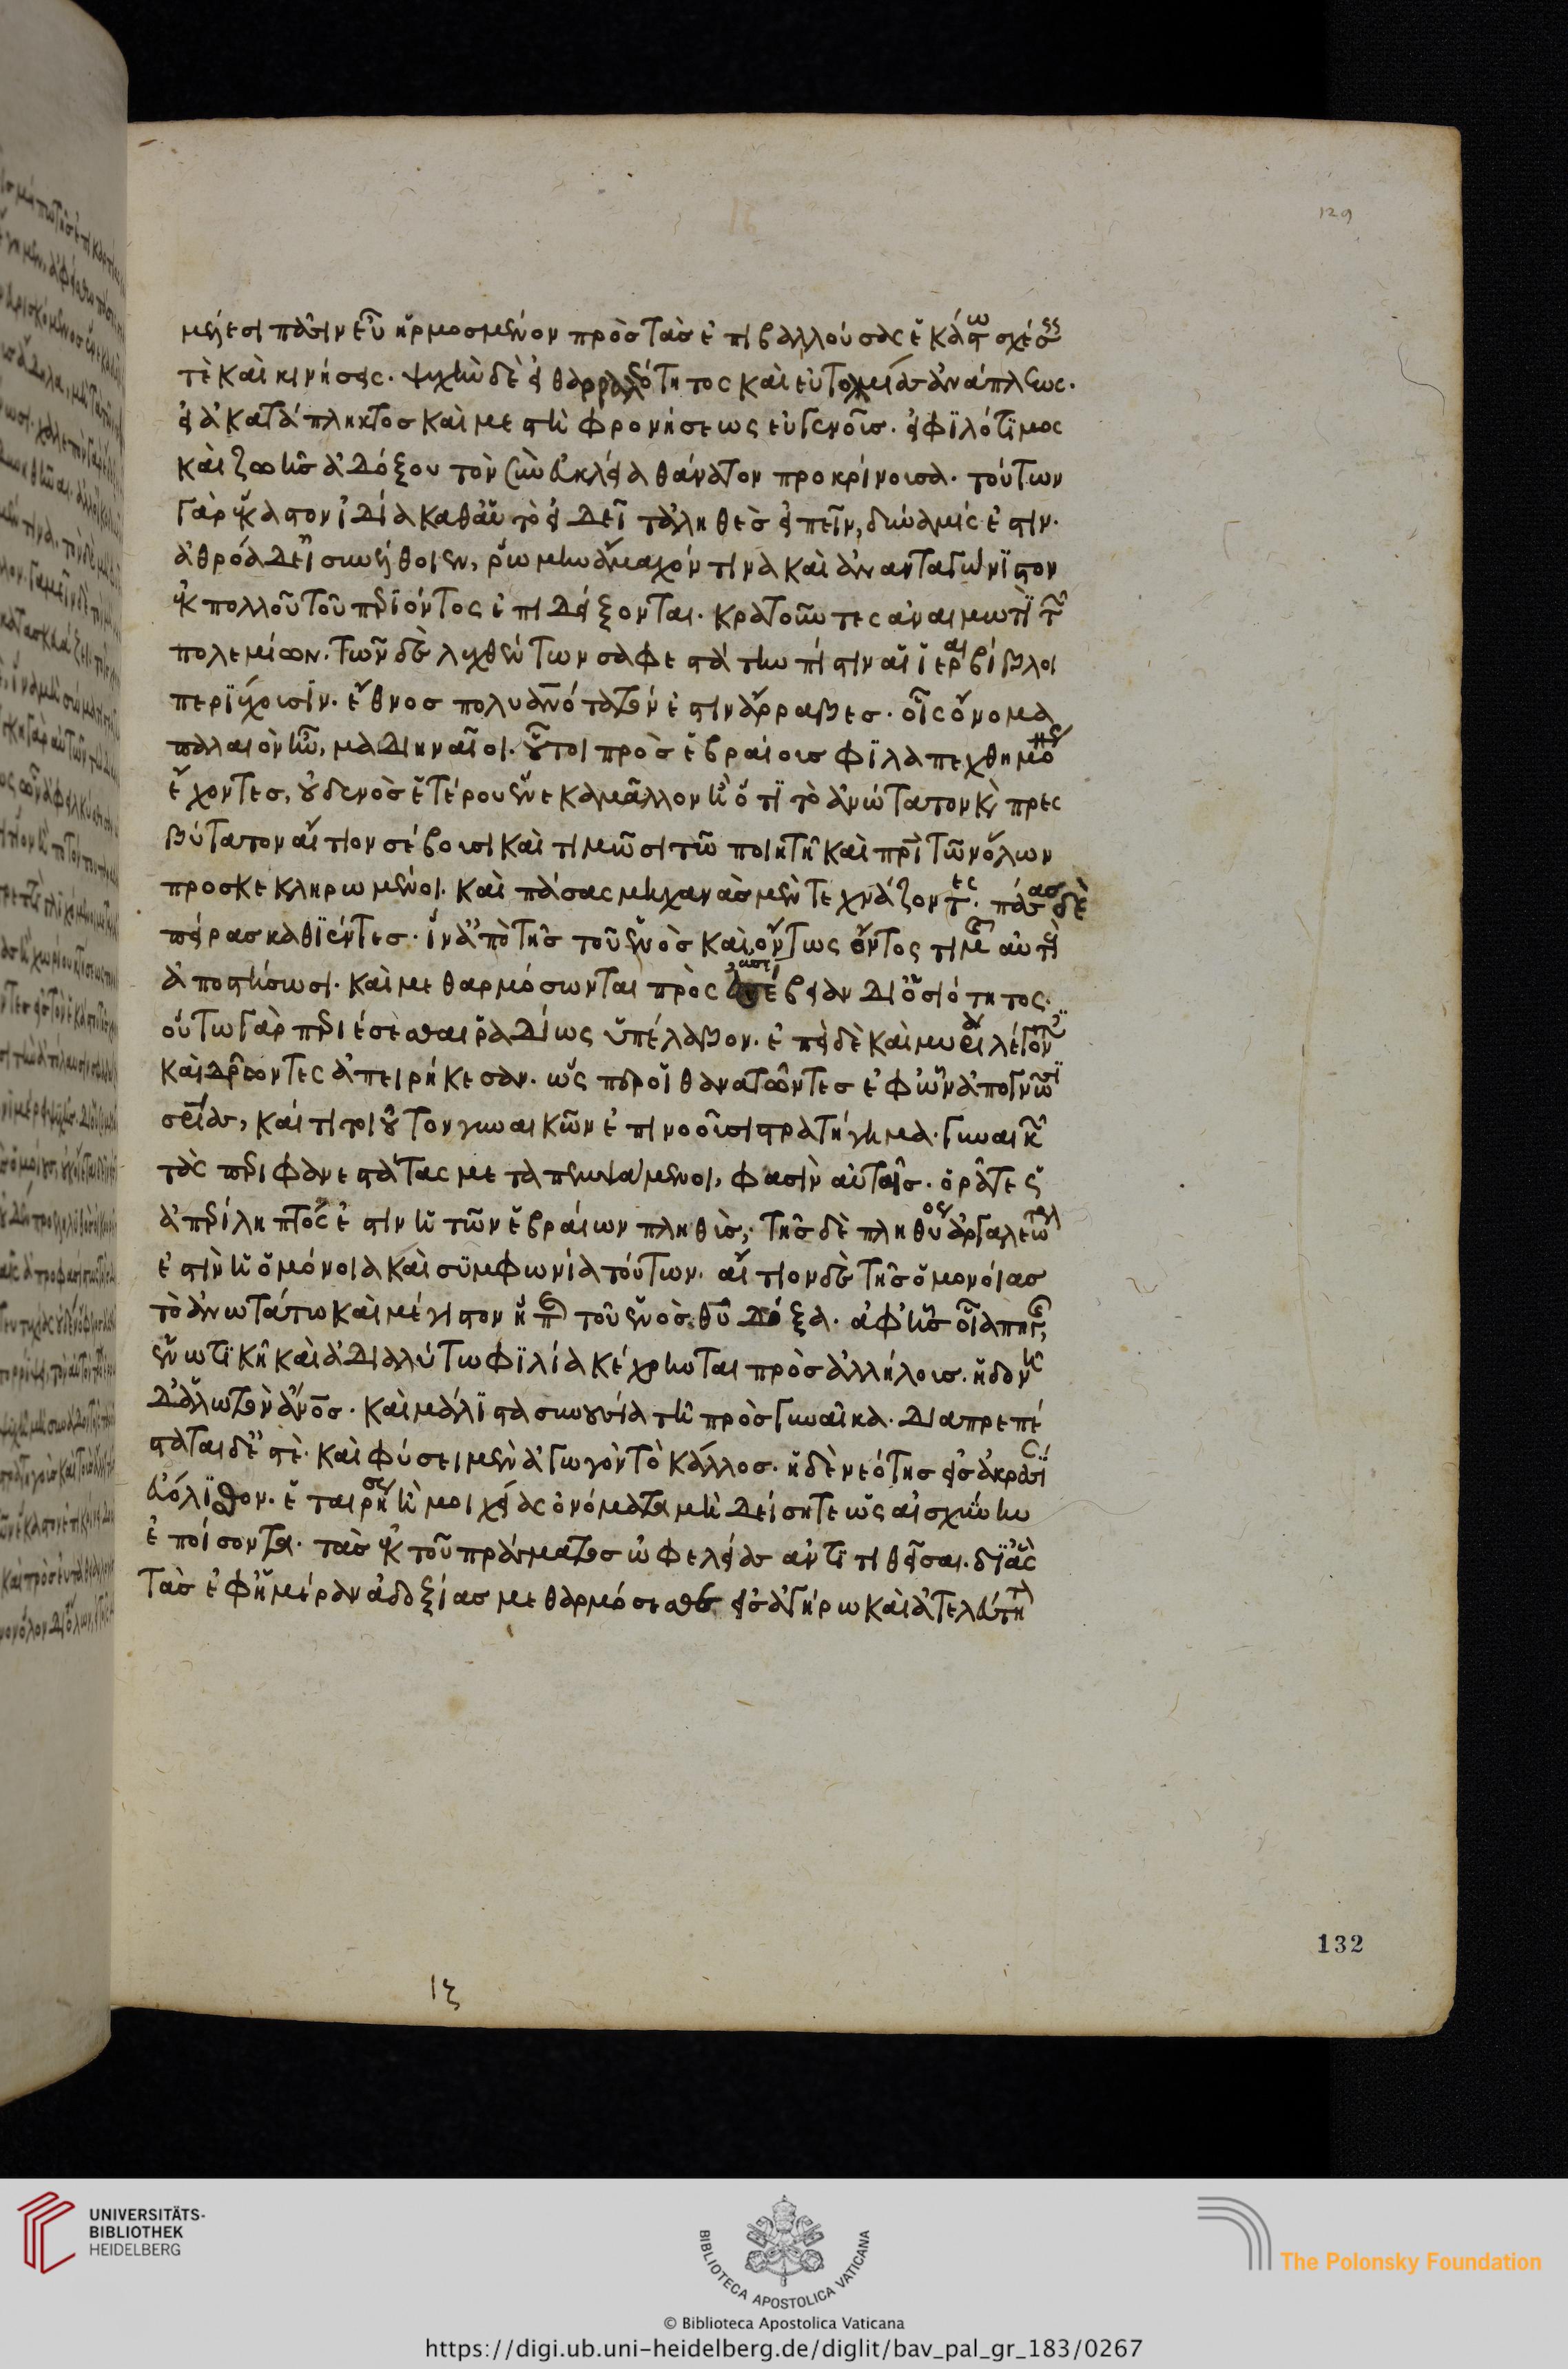 129
μέρεσι πᾶσιν εὖ ἡρμοσμένον πρὸς τὰς ἐπιβαλλούσας ἑκάστω σχέσεις
τὲ καὶ κινήσεις. ψυχὴ δὲ ἡ θαρραλεότητος καὶ εὐτολμίας ἀνάπλεως.
ἡ ἀκατάπληκτος καὶ μεστὴ φρονήσεως εὐγενοῦς. ἡ φιλότιμος
καὶ ζωῆς ἀδόξου τὸν σὺν εὐκλεία θάνατον προκρίνουσα. τούτων
γὰρ ἕκαστον ἰδία καθαὑτὸ εἰ δεῖ τἀληθὲς εἰπεῖν, δύναμίς ἐστιν.
ἀθρόα δ' εἰ συνέλθοιεν, ῥώμην ἄμαχόν τινα καὶ ἀνανταγώνιστον
ἐκ πολλοῦ τοῦ περιόντος ἐπιδείξονται. κρατοῦντες ἀναιμωτὶ τῶν
πολεμίων. τῶν δὲ λεχθέντων σαφεστάτην πίστιν αἱ ἱεραὶ βίβλοι
περιέχουσιν. ἔθνος πολυανότατόν ἐστιν ἄρραβες. οἷς ὄνομα
παλαιὸν ἦν, μαδιηναῖοι. οὗτοι πρὸς ἑβραίους φιλαπεχθημόνως
ἔχοντες, οὐδενὸς ἑτέρου ἕνεκα μᾶλλον ἢ ὅτι τὸ ἀνώτατον κ πρεσ
βύτατον αἴτιον σέβουσι καὶ τιμῶσι τῶ ποιητῆ καὶ πρὶ τῶν ὅλων
προσκεκληρωμένοι. καὶ πάσας μηχανὰς μὲν τεχνάζοντες. πάσας δὲ
πείρας καθιέντες. ἵν' ἀπὸ τῆς τοῦ ἑνὸς καὶ ὄντως ὄντος τιμῆς αὐτοὺς
ἀποστήσωσι. καὶ μεθαρμόσωνται πρὸς ἀσέβειαν δι' ὁσιότητος.
οὕτω γὰρ περιέσεσθαι ῥαδίως ὑπέλαβον. ἐπεὶ δὲ καὶ μυρία λέγοντες
καὶ δρῶντες ἀπειρήκεσαν. ὡς περ οἱ θανατῶντες ἐφ' ὧν ἀπογνῶσι
σωτηρίας, καί τι τοιοῦτον γυναικῶν ἐπινοοῦσι στρατήγημα. γυναικῶν
τὰς περιφανεστάτας μεταπεμψάμενοι, φασὶν αὐταῖς. ὁρᾶτε ὡς
ἀπερίληπτός ἐστιν ἡ τῶν ἑβραίων πληθὺς. τῆς δὲ πληθύος ἀργαλεώτερον
ἐστὶν ἡ ὁμόνοια καὶ συμφωνία τούτων. αἴτιον δὲ τῆς ὁμονοίας
τὸ ἀνωτάτω καὶ μέγιστον ἡ περὶ τοῦ ἑνὸς θῦ δόξα. ἀφ' ἧς οἷα πηγῆς,
ἑνωτικῆ καὶ ἀδιαλύτω φιλία κέχρηνται πρὸς ἀλλήλους. ἡδονῆς
δ' ἁλωτὸν ἄνος. καὶ μάλιστα συνουσία τῆ πρὸς γυναῖκα. διαπρεπέ
σταται δ' ἐστὲ. καὶ φύσει μὲν ἀγωγὸν τὸ κάλλος. ἡ δὲ νεότης εἰς ἀκρασίαν
εὐόλισθον. ἑταιρήσεως ἢ μοιχείας ὀνόματα μὴ δείσητε ὡς αἰσχύνην
ἐποίσοντα. τὰς ἐκ τοῦ πράγματος ὠφελείας ἀντιτιθεῖσαι. δι' ἃς
τὰς ἐφημέραν ἀδοξίας μεθαρμόσεσθε εἰς ἀγήρω καὶ ἀτελεύτητον
ιζ
132
UNIVERSITÄTS-
BIBLIOTHEK
HEIDELBERG
BIBLIOTECA APOSTOLICA VATICANA
The Polonsky Foundation
© Biblioteca Apostolica Vaticana
https://digi.ub.uni-heidelberg.de/diglit/bav_pal_gr_183/0267